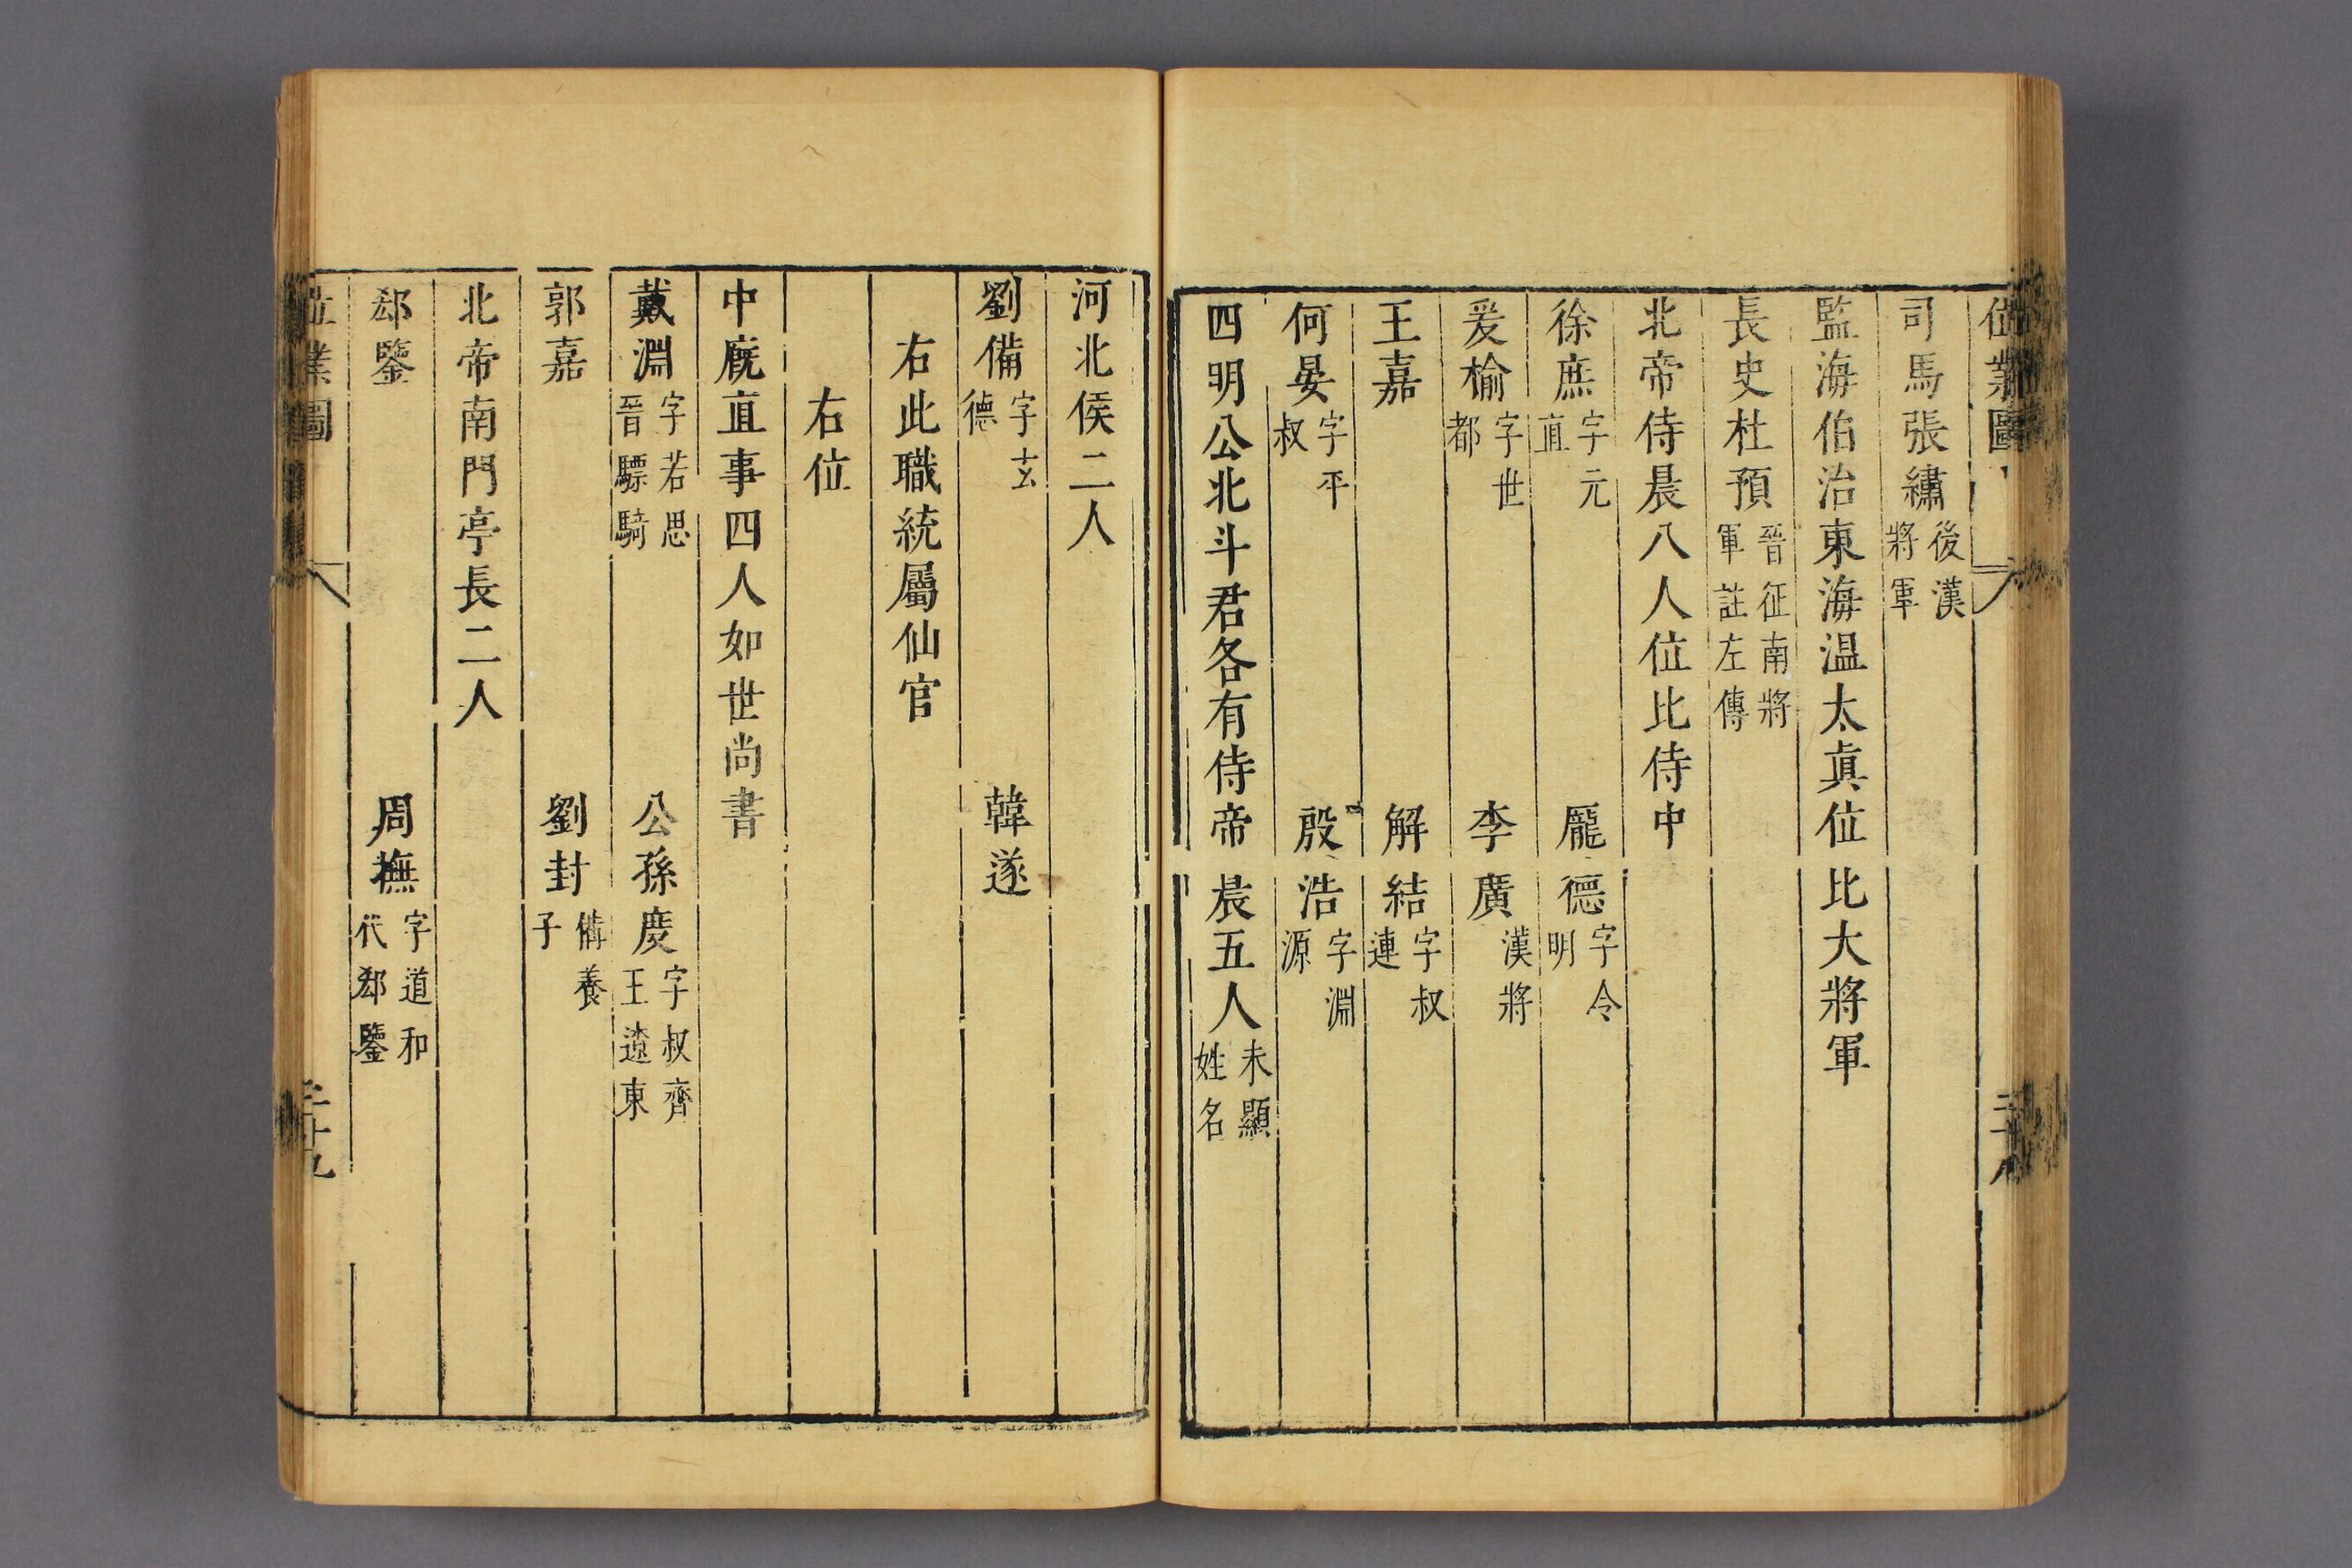 位業圖
二十八
司馬張繡後漢將軍
監海伯治東海温太眞位比大將軍
長史杜預晉征南將軍註左傳
北帝侍晨八人位比侍中
徐庶字元直 龎德字令明
爰榆字世都 李廣漢將
王嘉 解結字叔連
何晏字平叔 殷浩字淵源
四明公北斗君各有侍帝晨五人未顯姓名
河北侯二人
劉備字玄德 韓遂
右此職統屬仙官
右位
中廐直事四人如世尚書
戴淵字若思晉驃騎 公孫度字叔齊王遼東
郭嘉 劉封備養子
北帝南門亭長二人
郄鑒 周撫字道和代郄鑒
位業圖
二十九